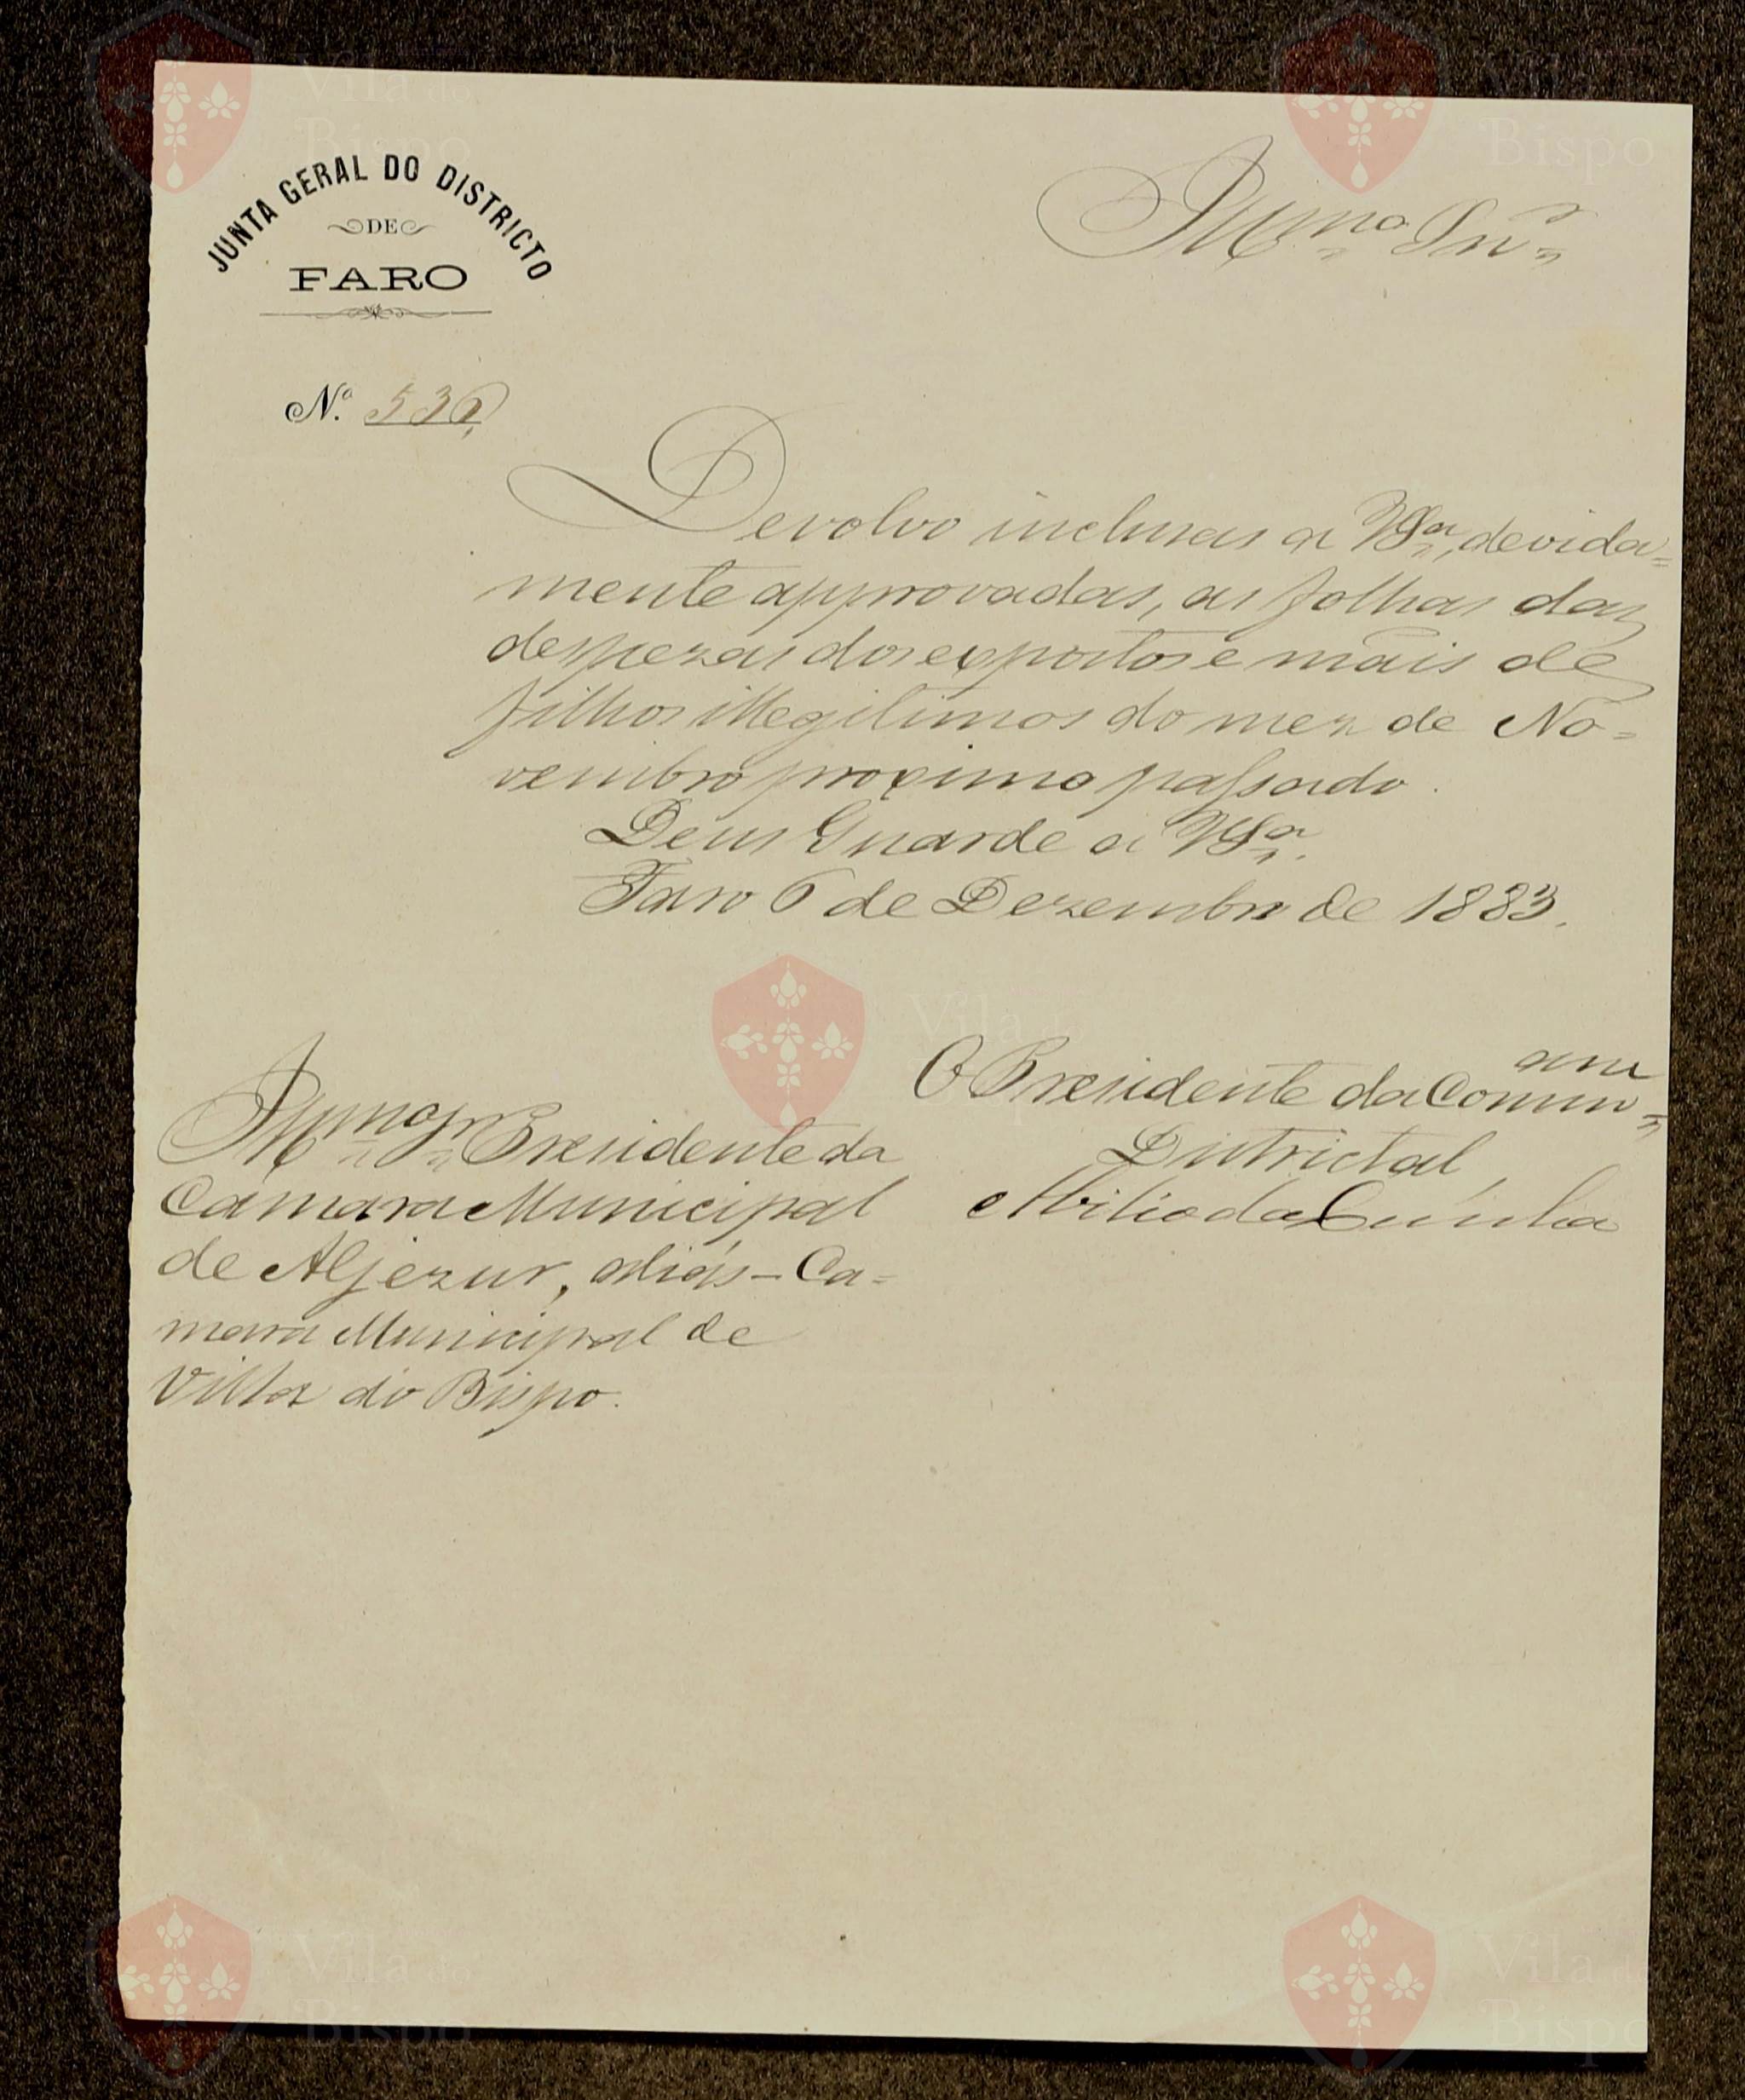 JUNTA GERAL DO DISTRICTO
DE
FARO
Illmo Snr
N.º 536
Devolvo inclusas a VSa, devida=
mente approvadas, as folhas das
despezas dos expostos e mais de
filhos illegitimos do mez de No=
vembro proximo passado.
Deus Guarde a VSa.
Faro 6 de Dezembro de 1883.
O Presidente da Commam
Districtal,
Abilio da Cunha
Illmo Snr Presidente da
Camara Municipal
de Aljezur, aliás - Ca=
mara Municipal de
Villa do Bispo.
Vila do
Bispo
Vila do
Bispo
Vila do
Bispo
Vila do
Bispo